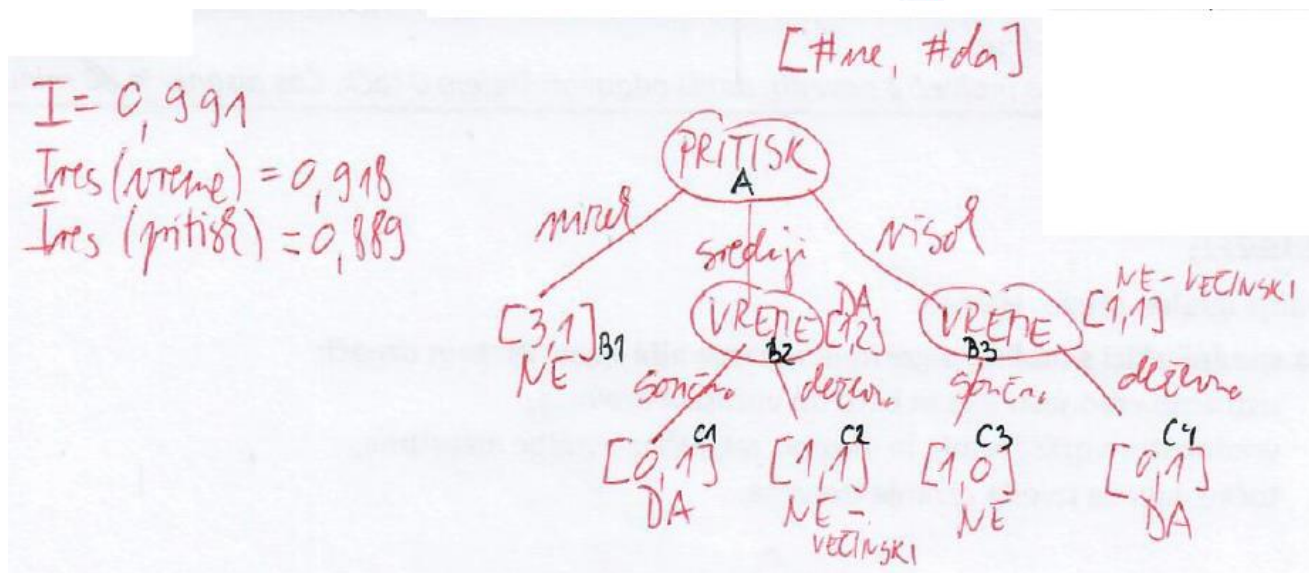 [#ne, #da]
I = 0,991
Ires (vreme) = 0,918
Ires (pritisk) = 0,889
PRITISK
A
nizek
srednji
visok
[3,1] B1
NE
VREME
B2
DA
[1,2]
VREME
B3
NE-VEČINSKI
[1,1]
sončno
deževno
sončno
deževno
C1
[0,1]
DA
C2
[1,1]
NE-
VEČINSKI
C3
[1,0]
NE
C4
[0,1]
DA